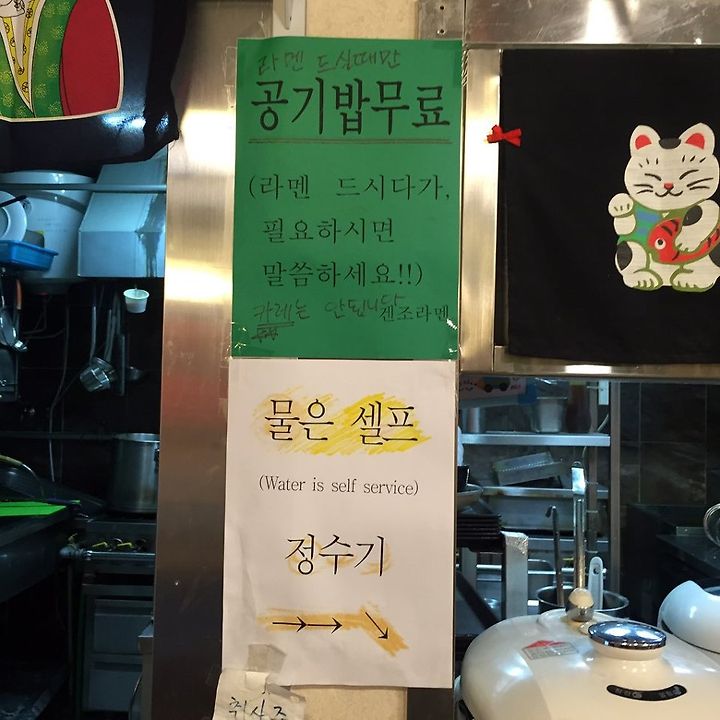 라멘 드실때만
공기밥무료
(라멘 드시다가,
필요하시면
말씀하세요!!)
카레는 안됩니다
겐조라멘
물은 셀프
(Water is self service)
정수기
→→ ↘
취사중